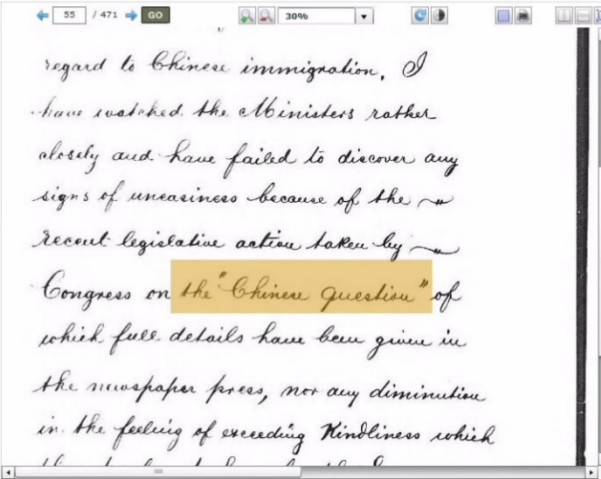 55 / 471 GO 30%
regard to Chinese immigration, I
have watched the Ministers rather
closely and have failed to discover any
signs of uneasiness because of the
recent legislative action taken by
Congress on the "Chinese Question" of
which full details have been given in
the newspaper press, nor any diminution
in the feeling of exceeding Kindliness which